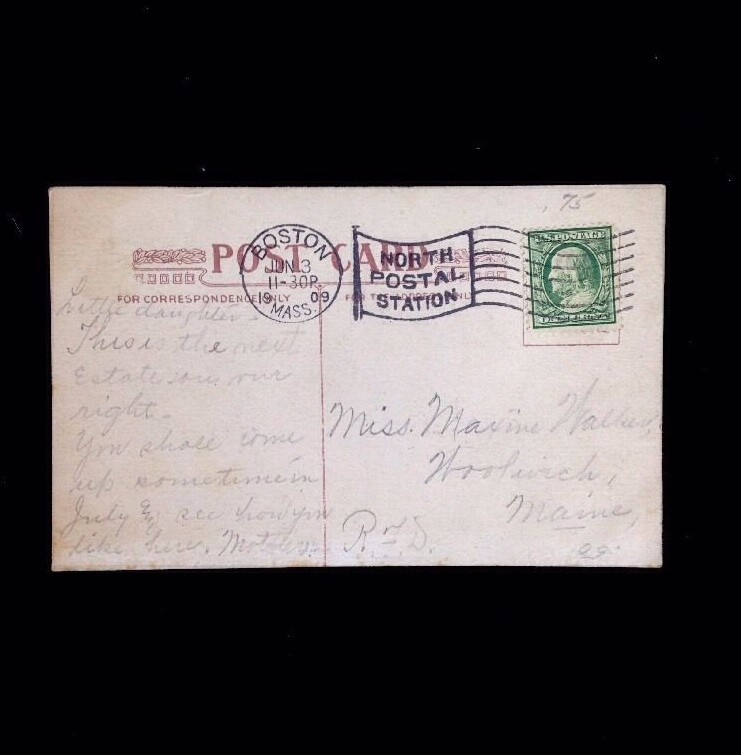 75
POST CARD
BOSTON
JUN 3
11-30P
19 09
MASS.
NORTH
POSTAL
STATION
U.S. POSTAGE
FOR CORRESPONDENCE ONLY
FOR THE ADDRESS ONLY
Little daughter -
This is the next
Estate on our
right -
You shall come
up sometime in
July & see how you
like here. Mother.
Miss. Maxine Walker,
Woolwich,
Maine,
R.F.D.